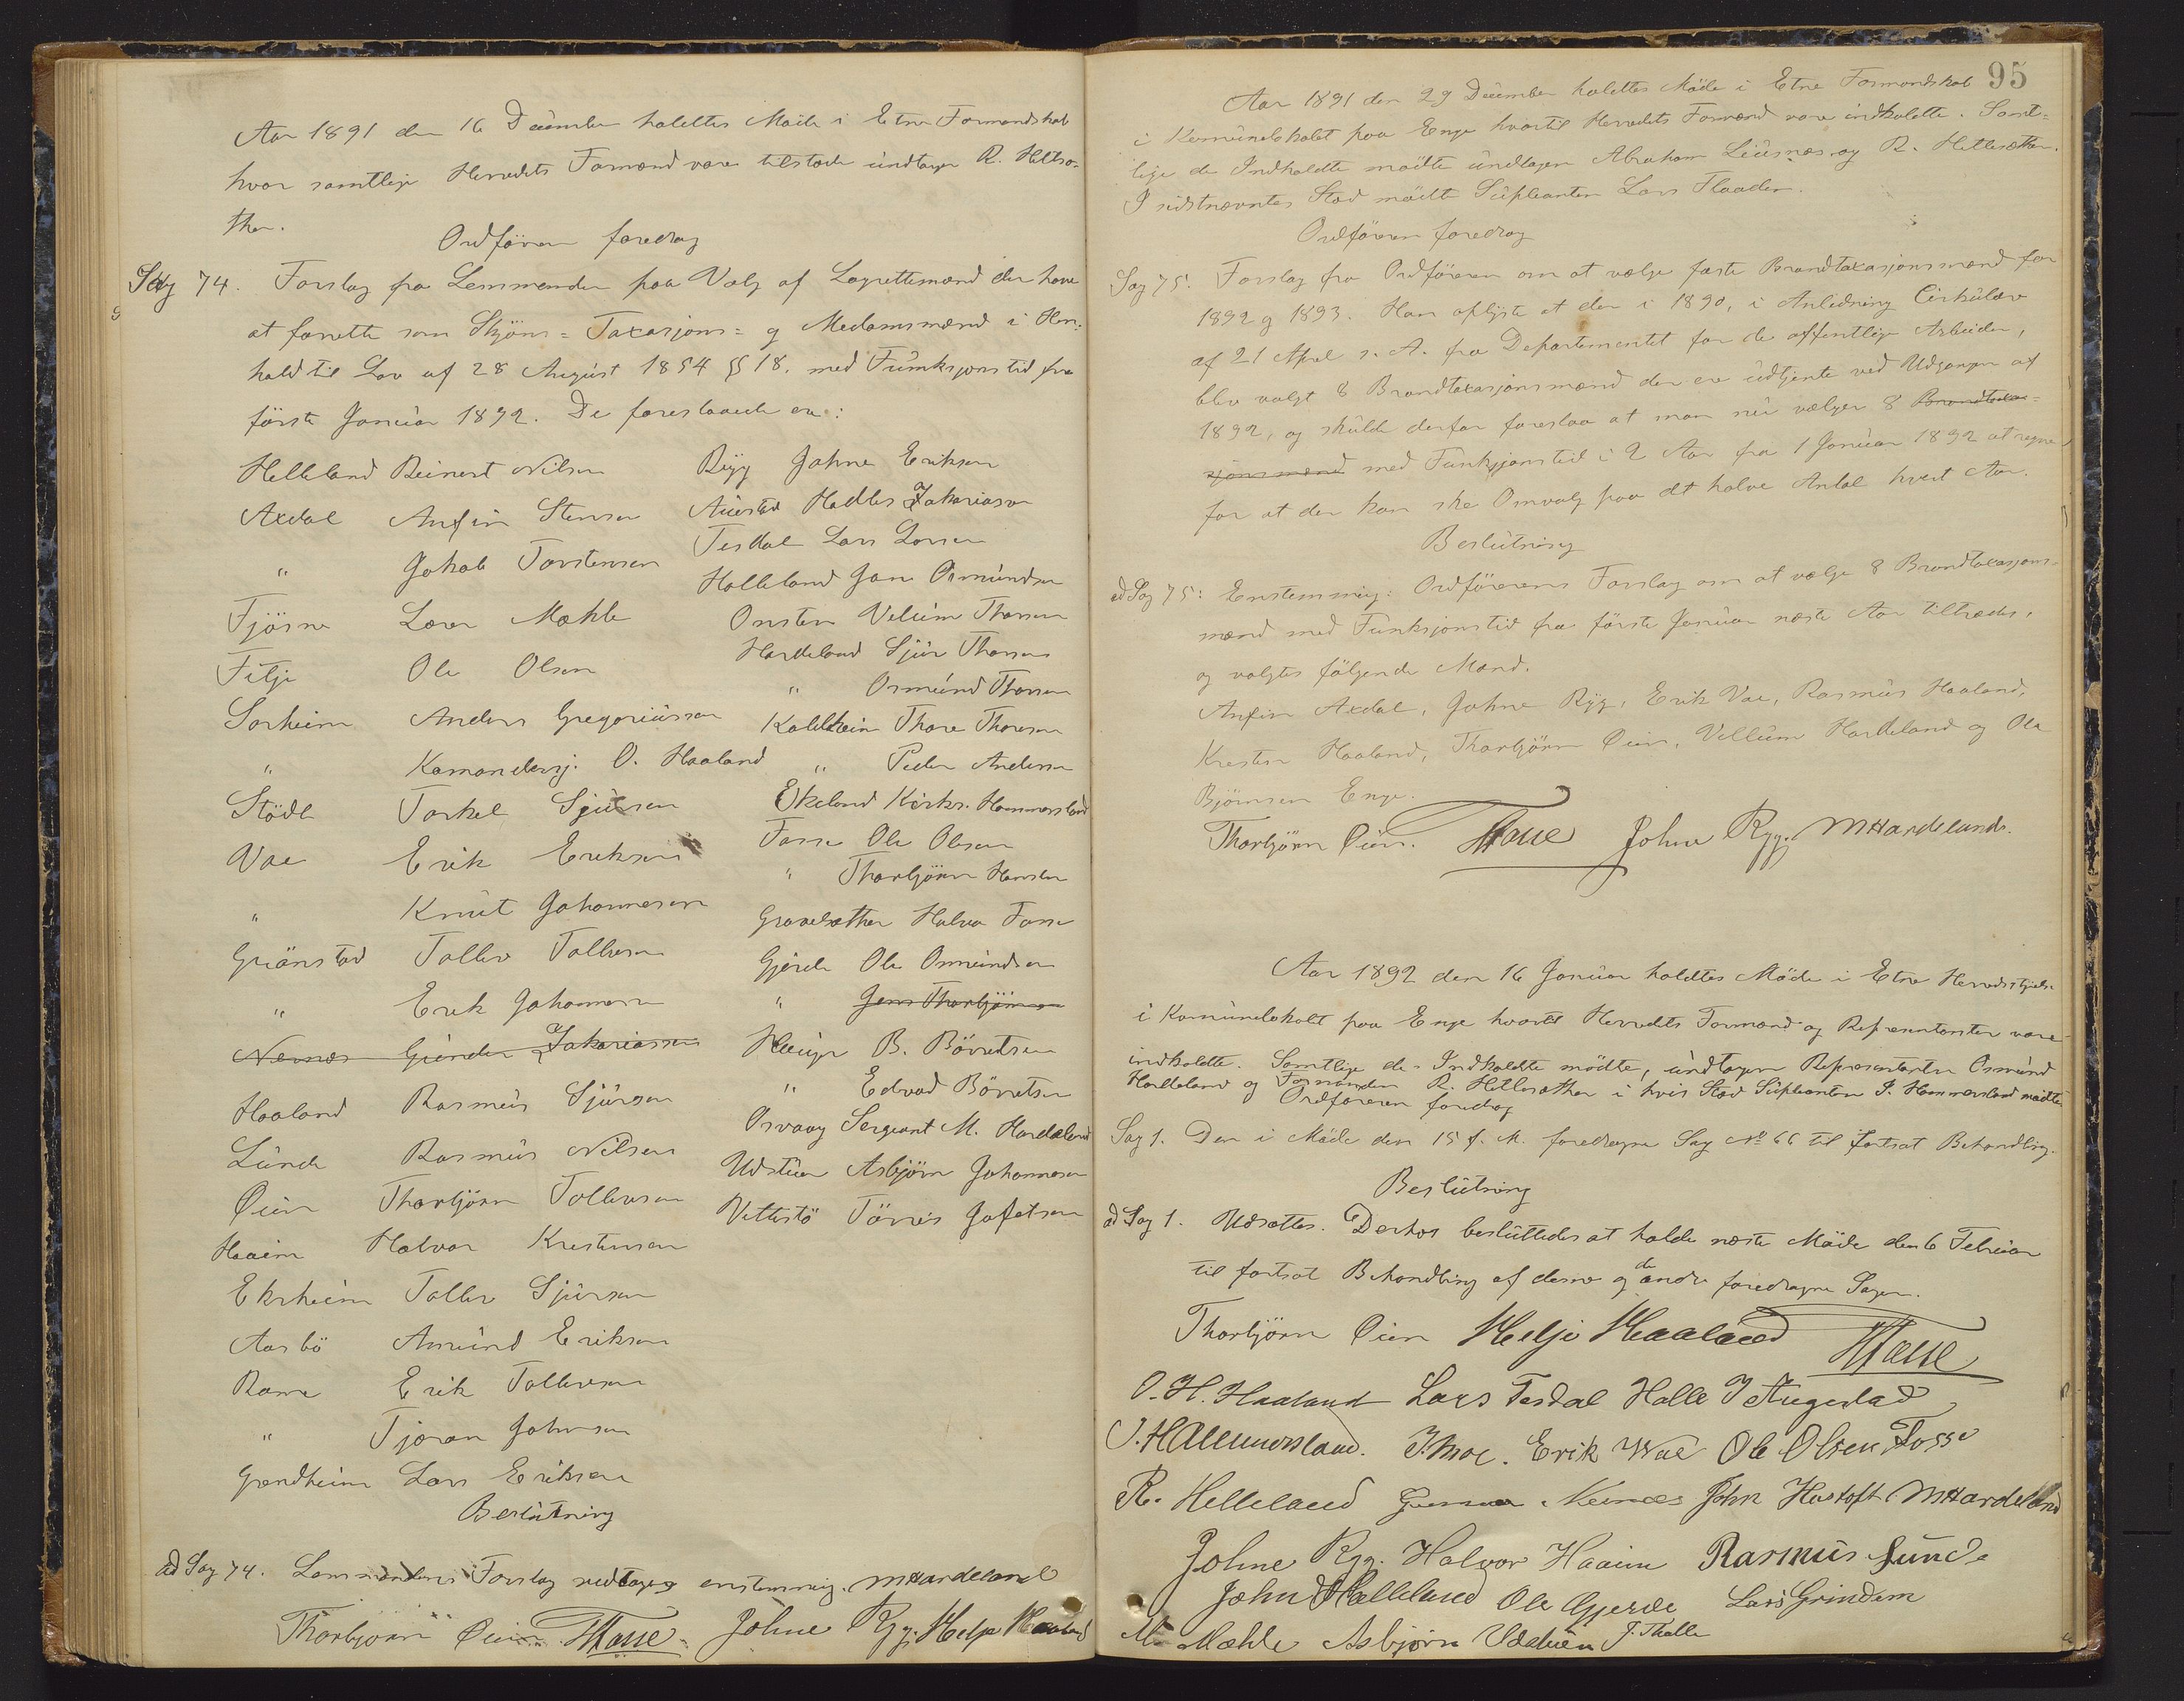 Aar 1891 den 16 December holdtes Möde i Etne Formandskab
hvor samtlige Herredets Formænd vare tilstede undtagen R. Hetlesæ-
ther.
Ordföreren foredrog
Sag 74. Forslag fra Lensmanden paa Valg af Lagrettemænd der have
at forrette som Skjöns= Taxasjons= og Medomsmænd i Hen-
hold til Lov af 28 August 1854 §§ 18. med Funksjonstid fra
förste Januar 1892. De foreslaaede er:
Helleland Reinert Nilsen
Axdal Anfin Stensen
" Jakob Torstensen
Fjösne Lars Mæhle
Fitje Ole Olsen
Sörheim Anders Gregoriussen
" Kamandersj. O. Haaland
Stödle Torkel Sjursen
Vae Erik Eriksen
" Knut Johannesen
Grönstad Tollev Tollevsen
" Erik Johannesen
Nernæs Gunder Zakariassen
Haaland Rasmus Sjursen
Lunde Rasmus Nilsen
Øien Thorbjörn Tollevsen
Haaim Halvor Kristensen
Ekrheim Tollev Sjursen
Aarbö Amund Eriksen
Rame Erik Tollevsen
" Tjöran Johnsen
Grendheim Lars Eriksen
Ryg Johne Eriksen
Auestad Hadles Zakariasen
Tesdal Lars Larsen
Halleland Jan Osmundsen
Onsten Velum Thorsen
Hardeland Sjur Thorsen
" Osmund Thorsen
Kaldheim Thore Thoresen
" Peder Andersen
Ekeland Kirks. Hammersland
Fosse Ole Olsen
" Thorbjörn Hansen
Gravelsæther Halvor Fosse
Gjerde Ole Osmundsen
" Jens Thorbjörnsen
Hauge B. Börretsen
" Edvad Börretsen
Osvaag Sergeant M. Hardeland
Udstuen Asbjörn Johannesen
Vettestö Törres Jofetsen
Beslutning
ad Sag 74. Lensmandens Forslag vedtages enstemmig. MHardeland
Thorbjörn Øien HFosse Johne Ryg. Helje Haaland
95
Aar 1891 den 29 December holdtes Möde i Etne Formandskab
i Kommunelokalet paa Enge hvortil Herredets Formænd vare indkaldte. Samt=
lige de Indkaldte mödte undtagen Abraham Leusnæs og R. Hetlesæther.
I sidstnævntes Sted mödte Supleanten Lars Flaaden.
Ordföreren foredrog
Sag 75. Forslag fra Ordföreren om at vælge faste Brandtaxasjonsmænd for
1892 og 1893. Han oplyste at der i 1890, i Anledning Cirkulære
af 21 April s. A. fra Departementet for de offentlige Arbeider,
blev valgt 8 Brandtaxasjonsmænd der er udtjente ved Udgangen af
1892, og skulde derfor foreslaa at man nu vælger 8 Brandtaxa=
sjonsmænd med Funksjonstid i 2 Aar fra 1 Januar 1892 at regne
for at der kan ske Omvalg paa det halve Antal hvert Aar.
Beslutning
ad Sag 75: Enstemmig: Ordförerens Forslag om at vælge 8 Brandtaxasjons-
mænd med Funksjonstid fra förste Januar næste Aar tiltrædes,
og valgtes fölgende Mænd.
Anfin Axdal, Johne Ryg, Erik Vae, Rasmus Haaland,
Kresten Haaland, Thorbjörn Øien, Vellum Hardeland og Ole
Björnsen Enge.
Thorbjörn Øien. HFosse Johne Ryg. MHardeland.
Aar 1892 den 16 Januar holdtes Möde i Etne Herredsstyrelse
i Kommunelokalet paa Enge hvortil Herredets Formænd og Representanter vare
indkaldte. Samtlige de Indkaldte mödte, undtagen Representanten Osmund
Hardeland og Formanden R. Hetlesæther i hvis Sted Supleanten I. Hammersland mödte
Ordföreren foredrog
Sag 1. Den i Möde den 15 f. M. foredragne Sag No 66 til fortsat Behandling.
Beslutning
ad Sag 1. Udsættes. Derhos besluttedes at holde næste Möde den 6 Februar
til fortsat Behandling af denne og de andre foredragne Sager.
Thorbjörn Øien Helje Haaland HFosse
O. H. Haaland Lars Tesdal Halle Augestad
I. Hammersland. I. Moe. Erik Wae Ole Olsen Fosse
R. Helleland Gunnar Nernæs John Hustoft MHardeland
Johne Ryg. Halvor Haaim Rasmus Lunde
John Halleland Ole Gjerde Lars Grindem
M Mæhle Asbjörn Udstuen J. Thelle